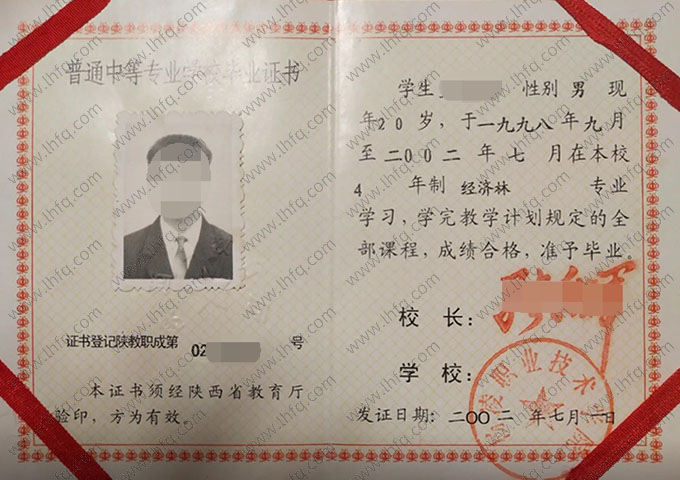 普通中等专业学校毕业证书
证书登记陕教职成第 02 号
本证书须经陕西省教育厅
验印，方为有效。
学生 性别 男 现
年20岁，于一九九八年九月
至二〇〇二年七月在本校
4 年制 经济林 专业
学习，学完教学计划规定的全
部课程，成绩合格，准予毕业。
校长：
学校：
陵职业技术学院
发证日期：二〇〇二年七月一日
www.lhfq.com